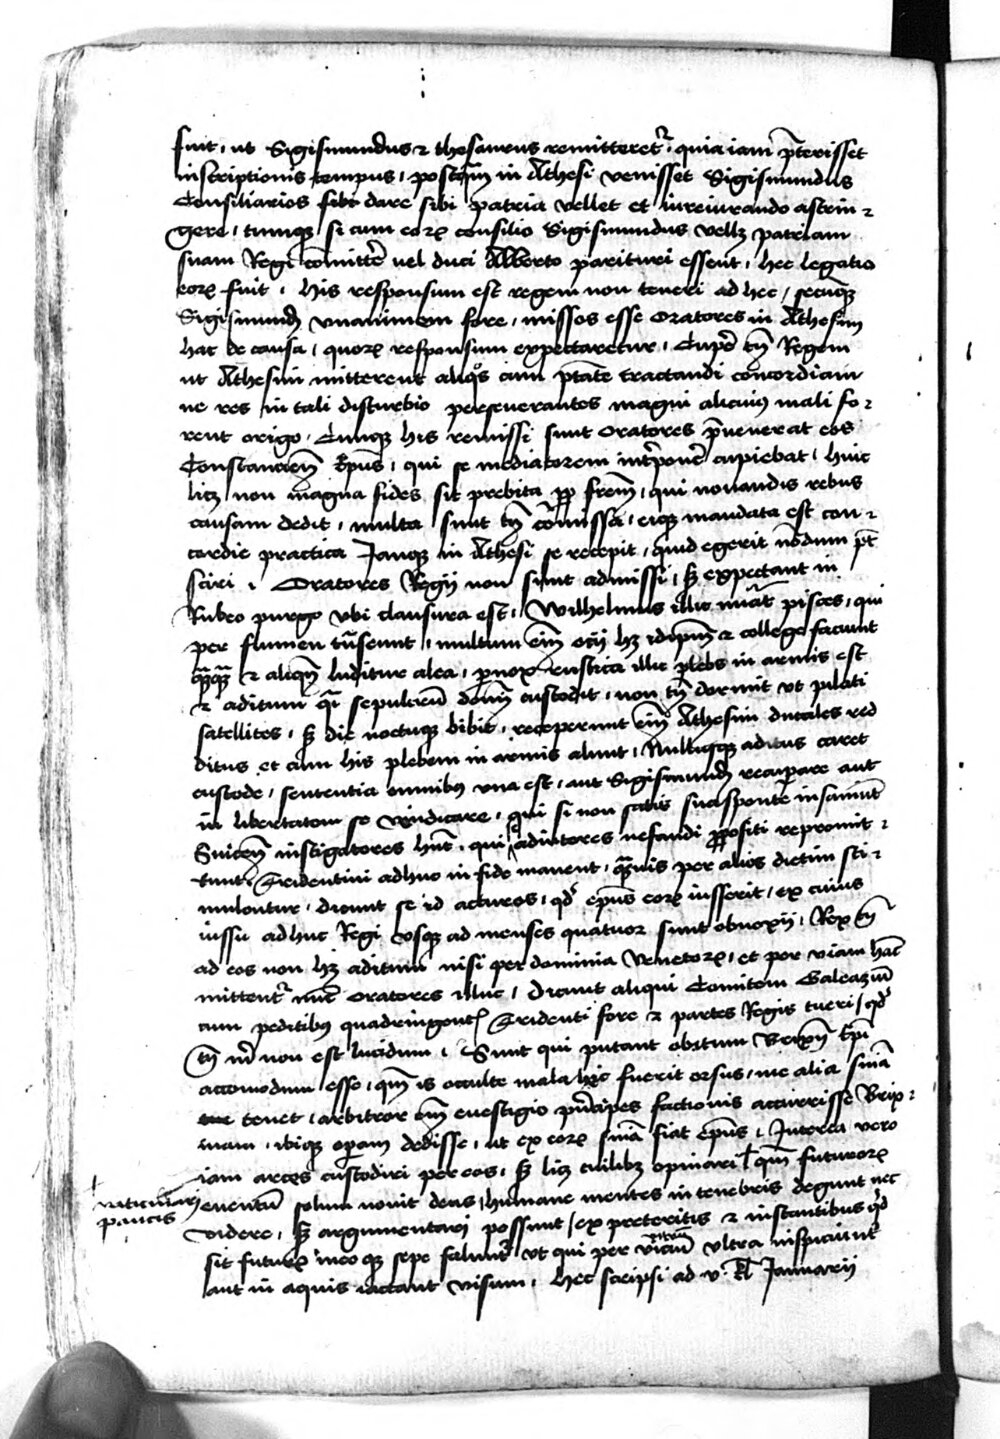 fuit, ut Sigismundus ⁊ thesaurus remitteretr̄, quia iam p̄terisset
inscriptionis tempus, postq̄m in Athesi venisset Sigismundus
Consiliarios sibi dare sibi patria vellet et iureiurando astrin⸗
gere, tumqꝫ si cum eoꝝ consilio Sigismundus vellꝫ patriam
suam Regi com̄itte᷑ vel duci Alberto parituri essent, hec legatio
eoꝝ fuit, His responsum est regem non teneri ad hec, secumqꝫ
Sigismund᷑ vnanimem fore, missos esse oratores in Athesim
hac de causa, quoꝝ responsum expectaretur, Cupe᷑ tn̄ Regem
ut Athesim mitterent aliq̊s cum p̄tate tractandi concordiam
ne res in tali disturbio perseuerantes magni alicuiꝯ mali fo⸗
rent origo, Cumqꝫ his remissi sunt oratores p̄uenerat eos
Constancien̄ Ep̄us, qui se mediatorem int̄pone᷑ cupiebat, huic
licꝫ non magna fides sit prebita ꝓp̄ frem̄, qui nouandis rebus
causam dedit, multa sunt tn̄ com̄issa, eiqꝫ mandata est con⸗
cordie practica Iamqꝫ in Athesi se recepit, quid egerit nōdum pt̄
sciri, Oratores Regij non sunt admissi, sꝫ expectant in
Rubeo purgo vbi clausura est, Wilhelmus illic pisces, qui
per flumen trāseunt, multum em̄ ocij hꝫ ⁊ college faciunt
⁊ aliqn̄ luditur alea, pernox rustica illic plebs in armis est
⁊ aditum qͣi sepulcrum dom̄ custodit, non tn̄ dormit vt pilati
satellites, sꝫ die noctuqꝫ bibit, receperunt em̄ Athesim ducales red
ditus et cum his plebem in armis alunt, Nullusqꝫ aditus caret
custode, sententia omnibꝯ vna est, aut Sigismund᷑ recuperare aut
in libertatem se vendicare, qui si non satis suasponte insaniunt
Suicen̄ instigatores hn̄t, qui adiutores nefandi ꝓpositi repromit⸗
tunt, Tridentini adhuc in fide manent, quāuis per alios dietim sti⸗
mulentur, dicunt se id acturos, qd̓ ep̄us eoꝝ iusserit, ex cuius
iussu adhuc Regi vsqꝫ ad menses quatuor sunt obnoxij, Rex tn̄
ad eos non hꝫ aditum nisi per dominia Venetoꝝ, et per viam hanc
mittentr̄ nūc oratores illuc, dicunt aliqui Comitem Galeazium̄
cum peditibꝯ quadringentꝭ Tridenti fore ⁊ partes Regis tueri, qd̓
tn̄ m̄ non est lucidum, Sunt qui putant obitum Brixn̄ Ep̄i
accomodum esse, qm̄ is occulte mala hec fuerit orsus, nec alia sniā
tenet, arbitror em̄ euestigio pn̄cipes factionis accurrisse Brix⸗
inam, ibiqꝫ operam dedisse, ut ex eoꝝ sniā fiat ep̄us, Interea vero
iam arces custodiri per eos, sꝫ licꝫ cuilibꝫ opinari qm̄ futuroꝝ
euentum solum nouit deus, humane mentes in tenebris degunt nec
videre, sꝫ argumentari possunt, ex preteritis ⁊ instantibus qd̓
sit futuꝝ ineoqꝫ sepe falluntr̄ vt qui per vitrum vltra inspiciunt
aut in aquis iactant visum, hec scripsi ad v. kl̄ Ianuarij
vaticinium
paucis